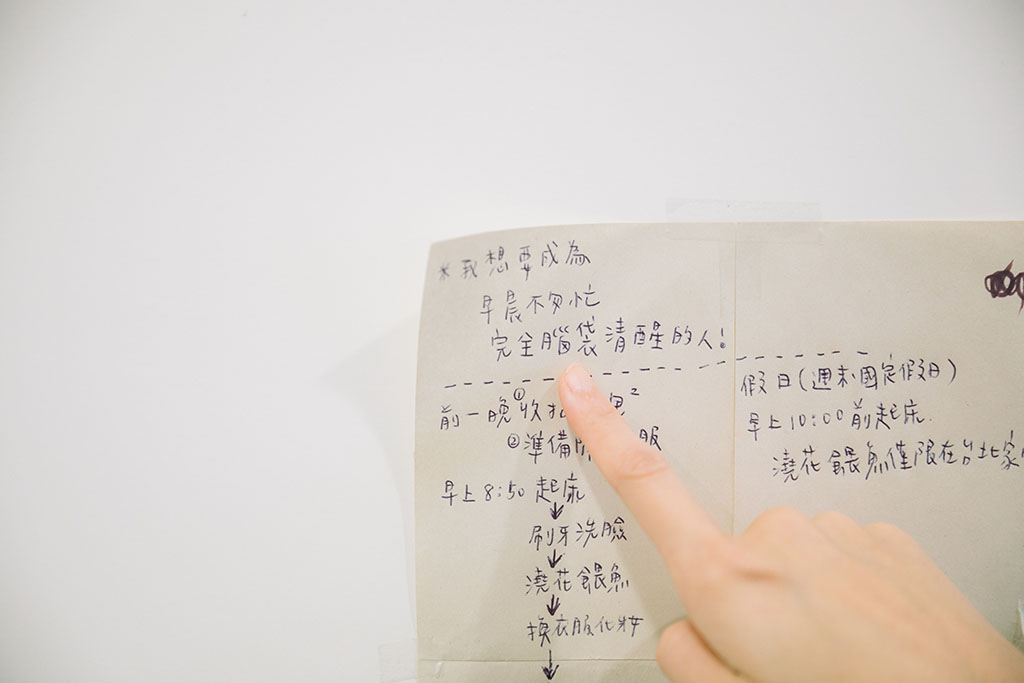 *我想要成為
早晨不匆忙
完全腦袋清醒的人!
前一晚①收
②準備 服
早上8:50起床
刷牙洗臉
澆花餵魚
換衣服化妝
假日(週末國定假日)
早上10:00前起床.
澆花餵魚僅限在台北家